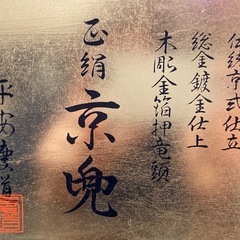 伝統京式仕立
総金鍍金仕上
木彫金箔押竜頭
正絹
京兜
平安